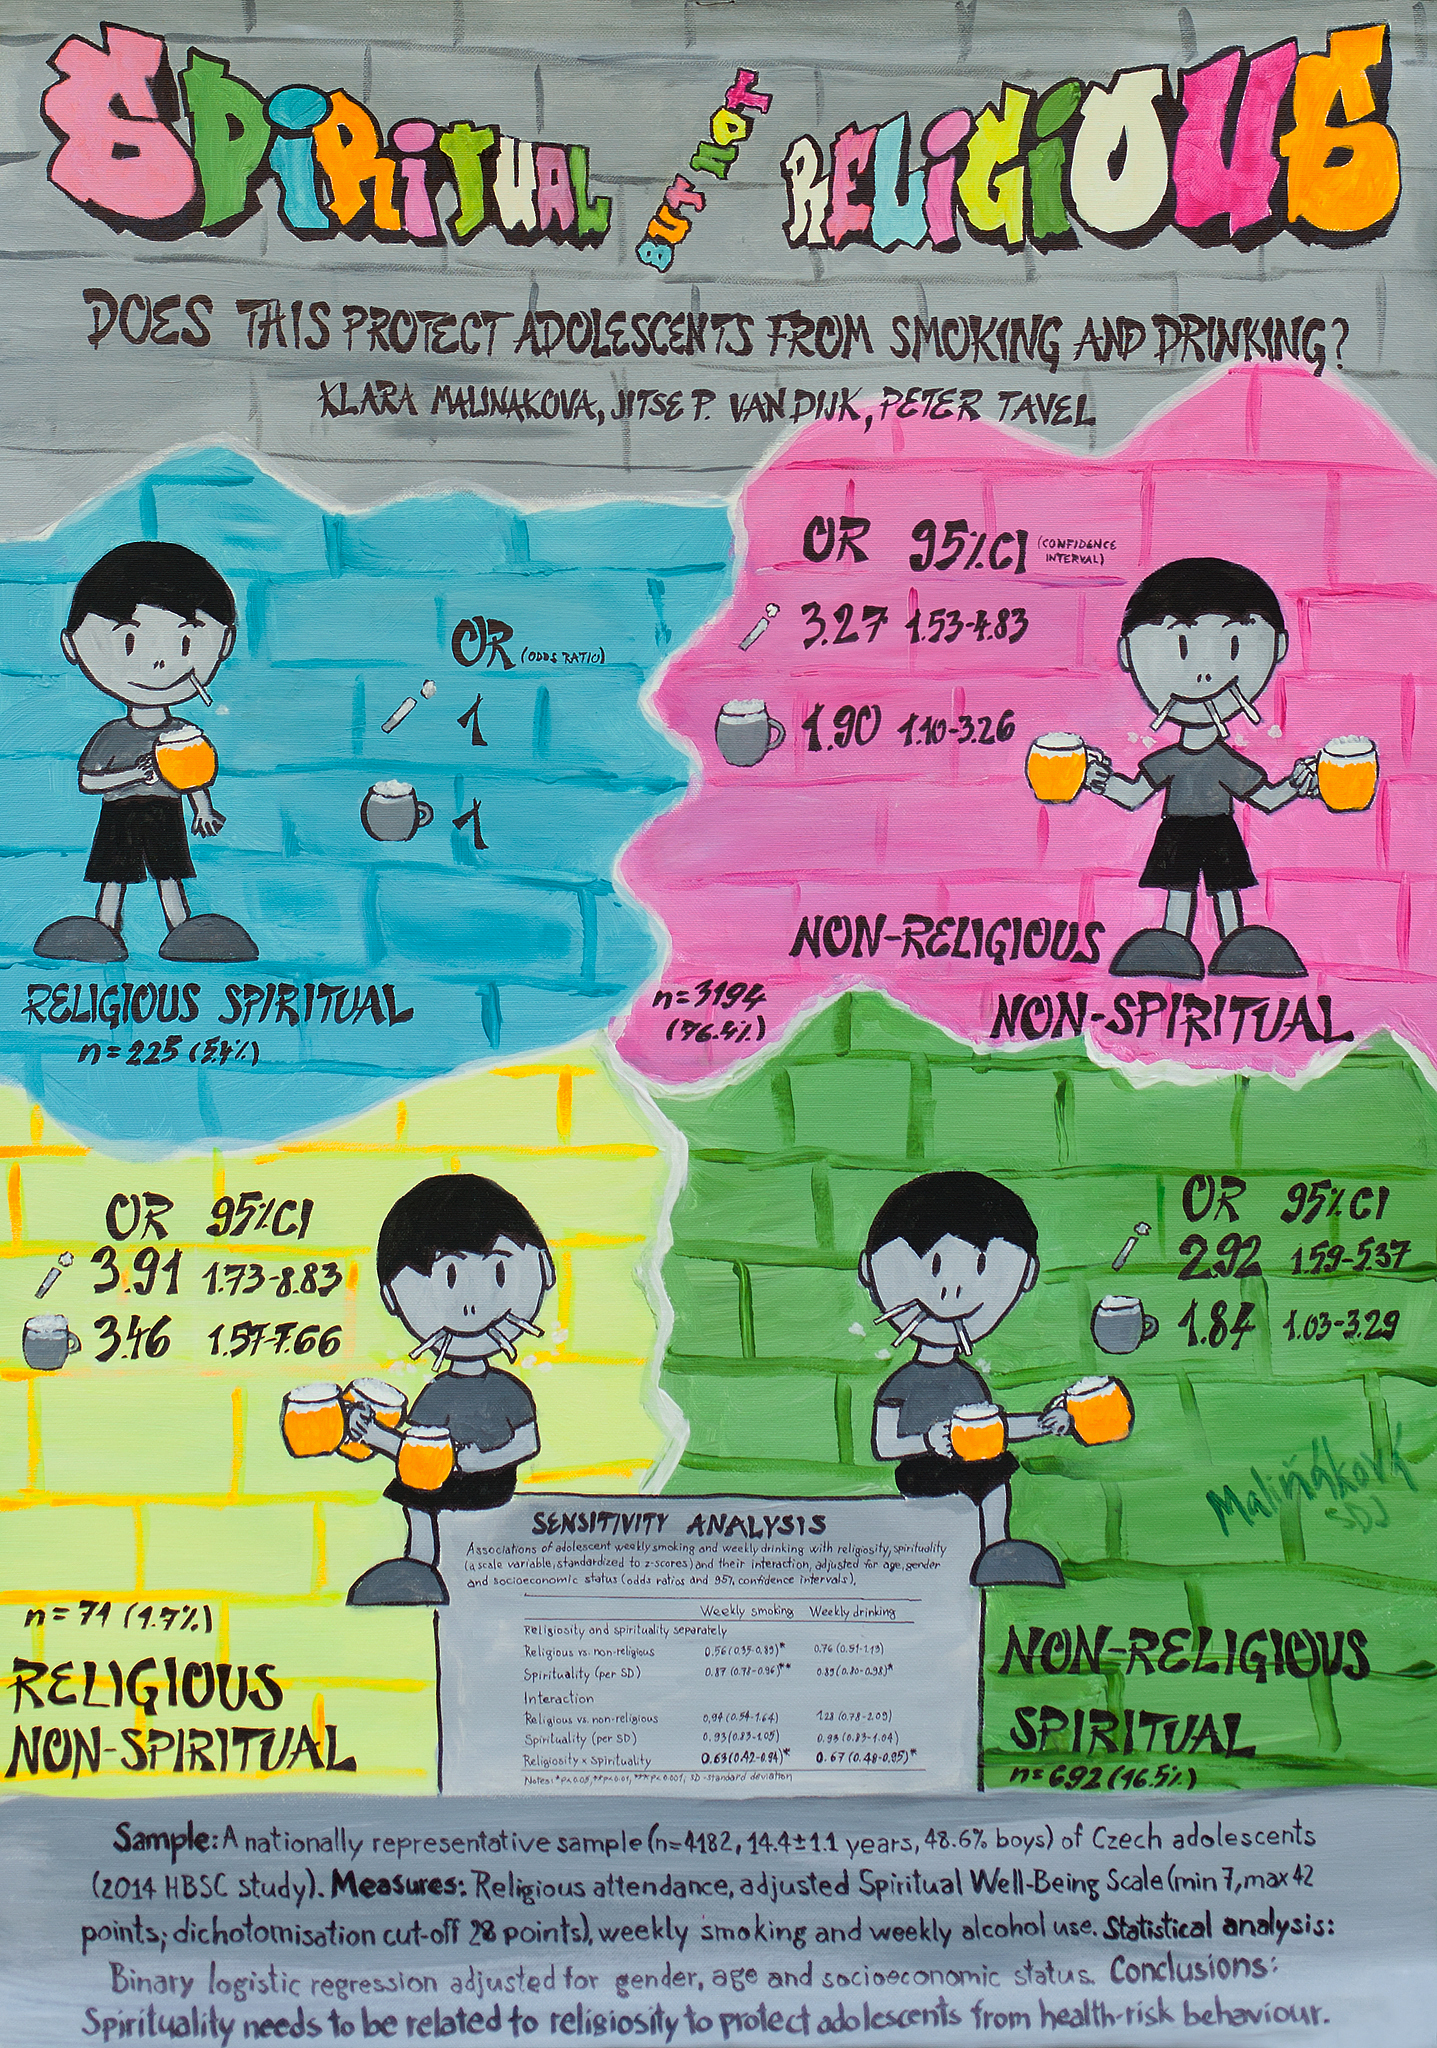 SPIRITUAL BUT NOT RELIGIOUS
DOES THIS PROTECT ADOLESCENTS FROM SMOKING AND DRINKING?
KLARA MALINAKOVA, JITSE P. VAN DIJK, PETER TAVEL
OR (ODDS RATIO)
1
1
RELIGIOUS SPIRITUAL
n=225 (5.4%)
OR 95% CI (CONFIDENCE INTERVAL)
3.27 1.53-4.83
1.90 1.10-3.26
NON-RELIGIOUS
n=3194
(76.4%)
NON-SPIRITUAL
OR 95% CI
3.91 1.73-8.83
3.46 1.57-7.66
n=71 (1.7%)
RELIGIOUS
NON-SPIRITUAL
OR 95% CI
2.92 1.59-5.37
1.84 1.03-3.29
Maliňáková
SDJ
NON-RELIGIOUS
SPIRITUAL
n=692 (16.5%)
SENSITIVITY ANALYSIS
Associations of adolescent weekly smoking and weekly drinking with religiosity, spirituality
(a scale variable, standardized to z-scores) and their interaction, adjusted for age, gender
and socioeconomic status (odds ratios and 95% confidence intervals).
Weekly smoking Weekly drinking
Religiosity and spirituality separately
Religious vs. non-religious 0.56 (0.35-0.89)* 0.76 (0.51-1.13)
Spirituality (per SD) 0.87 (0.78-0.96)** 0.89 (0.80-0.98)*
Interaction
Religious vs. non-religious 0.94 (0.54-1.64) 1.28 (0.78-2.09)
Spirituality (per SD) 0.93 (0.83-1.05) 0.93 (0.83-1.04)
Religiosity x Spirituality 0.63 (0.42-0.94)* 0.67 (0.48-0.95)*
Notes: *p<0.05, **p<0.01, ***p<0.001, SD-standard deviation
Sample: A nationally representative sample (n=4182, 14.4±1.1 years, 48.6% boys) of Czech adolescents
(2014 HBSC study). Measures: Religious attendance, adjusted Spiritual Well-Being Scale (min 7, max 42
points; dichotomisation cut-off 28 points), weekly smoking and weekly alcohol use. Statistical analysis:
Binary logistic regression adjusted for gender, age and socioeconomic status. Conclusions:
Spirituality needs to be related to religiosity to protect adolescents from health-risk behaviour.